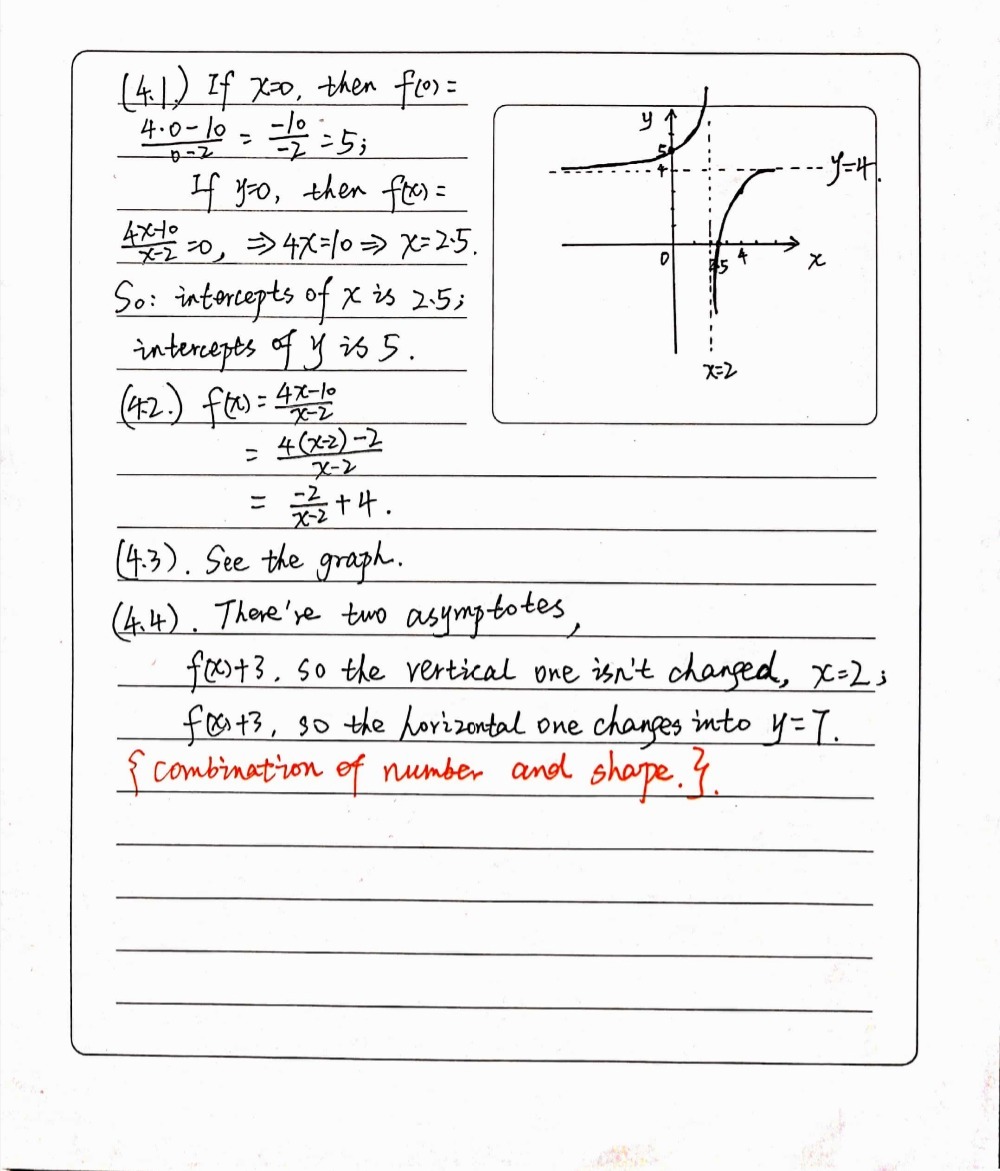 (4.1.) If x=0, then f(0)=
4·0-10/0-2 = -10/-2 = 5;
If y=0, then f(x)=
4x-10/x-2 =0, ⇒ 4x=10 ⇒ x=2.5.
So: intercepts of x is 2.5;
intercepts of y is 5.
(4.2.) f(x) = 4x-10/x-2
= 4(x-2)-2/x-2
= -2/x-2 + 4.
(4.3). See the graph.
(4.4). There're two asymptotes,
f(x)+3, so the vertical one isn't changed, x=2;
f(x)+3, so the horizontal one changes into y=7.
{ combination of number and shape. }.
y
5
4
y=4.
0
2.5
4
x
x=2